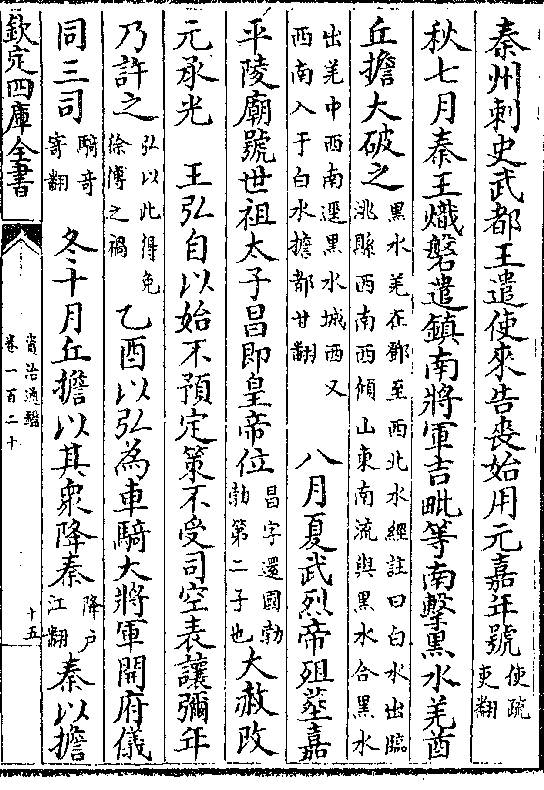 秦州刺史武都王遣使來告喪始用元嘉年號使疏吏翻
秋七月秦王熾磐遣鎮南將軍吉毗等南擊黑水羌酋
丘擔大破之黑水羌在鄧至西北水經註曰白水出臨洮縣西南西傾山東南流與黑水合黑水
出羌中西南逕黑水城西又西南入于白水擔都甘翻 八月夏武烈帝殂葬嘉
平陵廟號世祖太子昌即皇帝位昌字還國勃勃第二子也大赦改
元承光 王弘自以始不預定策不受司空表讓彌年
乃許之弘以此得免徐傅之禍 乙酉以弘為車騎大將軍開府儀
同三司騎奇寄翻 冬十月丘擔以其衆降秦降户江翻秦以擔
欽定四庫全書
資治通鑑
卷一百二十
十五